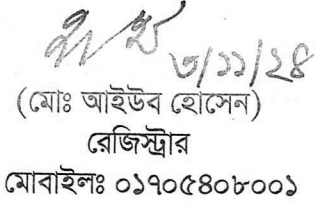 ৩/১১/২৪
(মোঃ আইউব হোসেন)
রেজিস্ট্রার
মোবাইলঃ ০১৭০৫৪০৮০০১